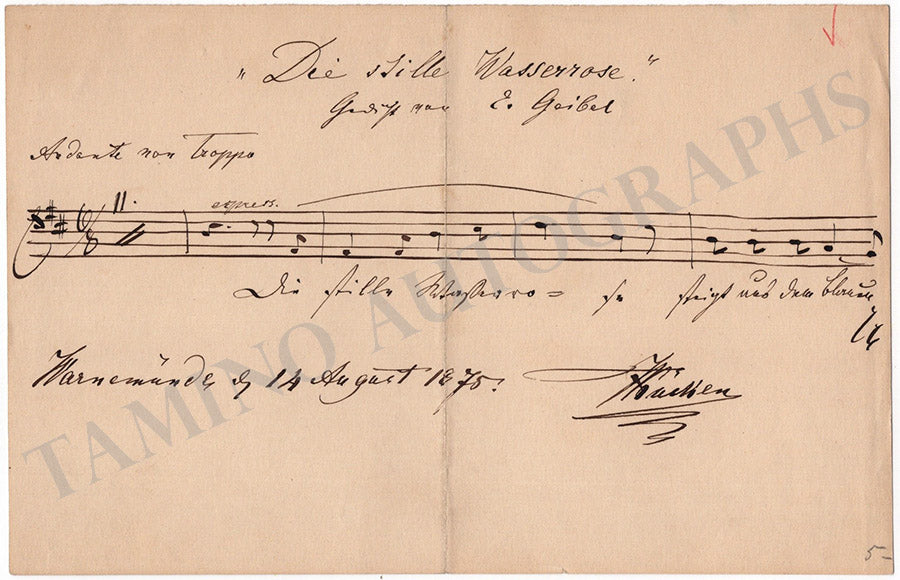 „Die stille Wasserrose."
Gedicht von E. Geibel
Andante non troppo
11.
6/8
express.
Die stille Wasserro = se steigt aus dem blauen
Warnemünde, d 14 August 1875.
Fr Kücken
5-
TAMINO AUTOGRAPHS